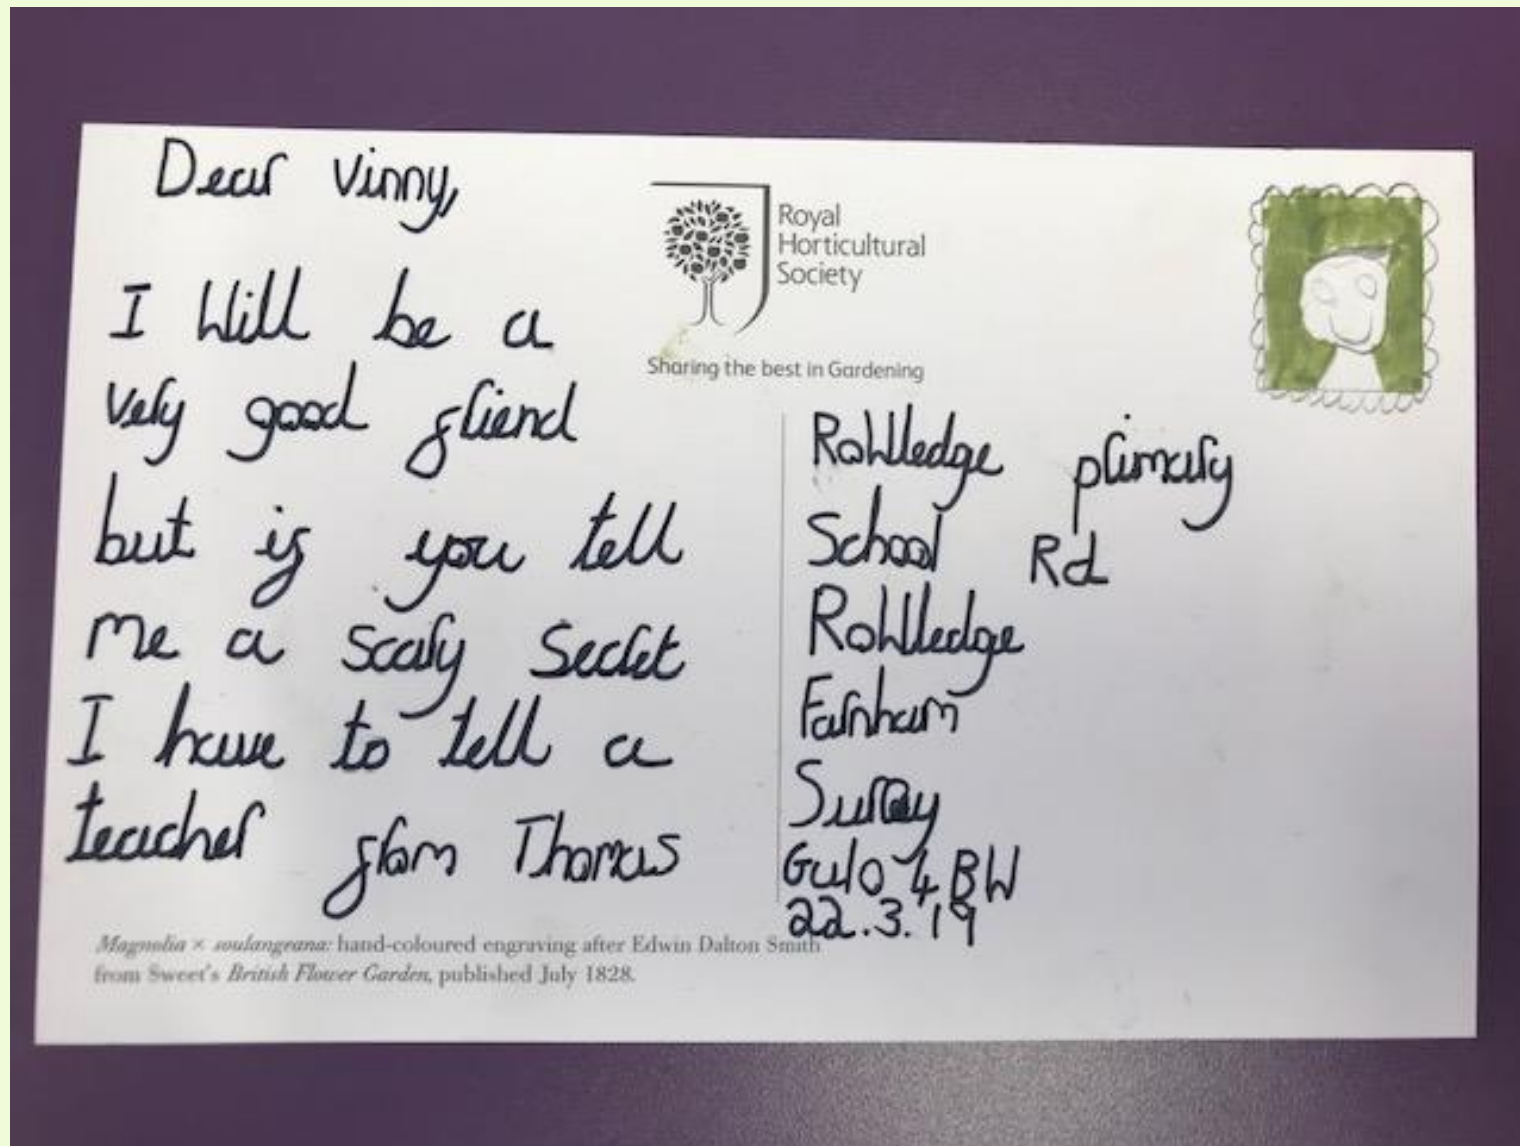 Dear Vinny,
I Will be a
very good friend
but if you tell
me a scary Secret
I have to tell a
teacher from Thomas
Royal
Horticultural
Society
Sharing the best in Gardening
Rowlledge primary
School Rd
Rowlledge
Farnham
Surray
Gulo 4 BW
22.3.19
Magnolia × soulangeana: hand-coloured engraving after Edwin Dalton Smith
from Sweet's British Flower Garden, published July 1828.